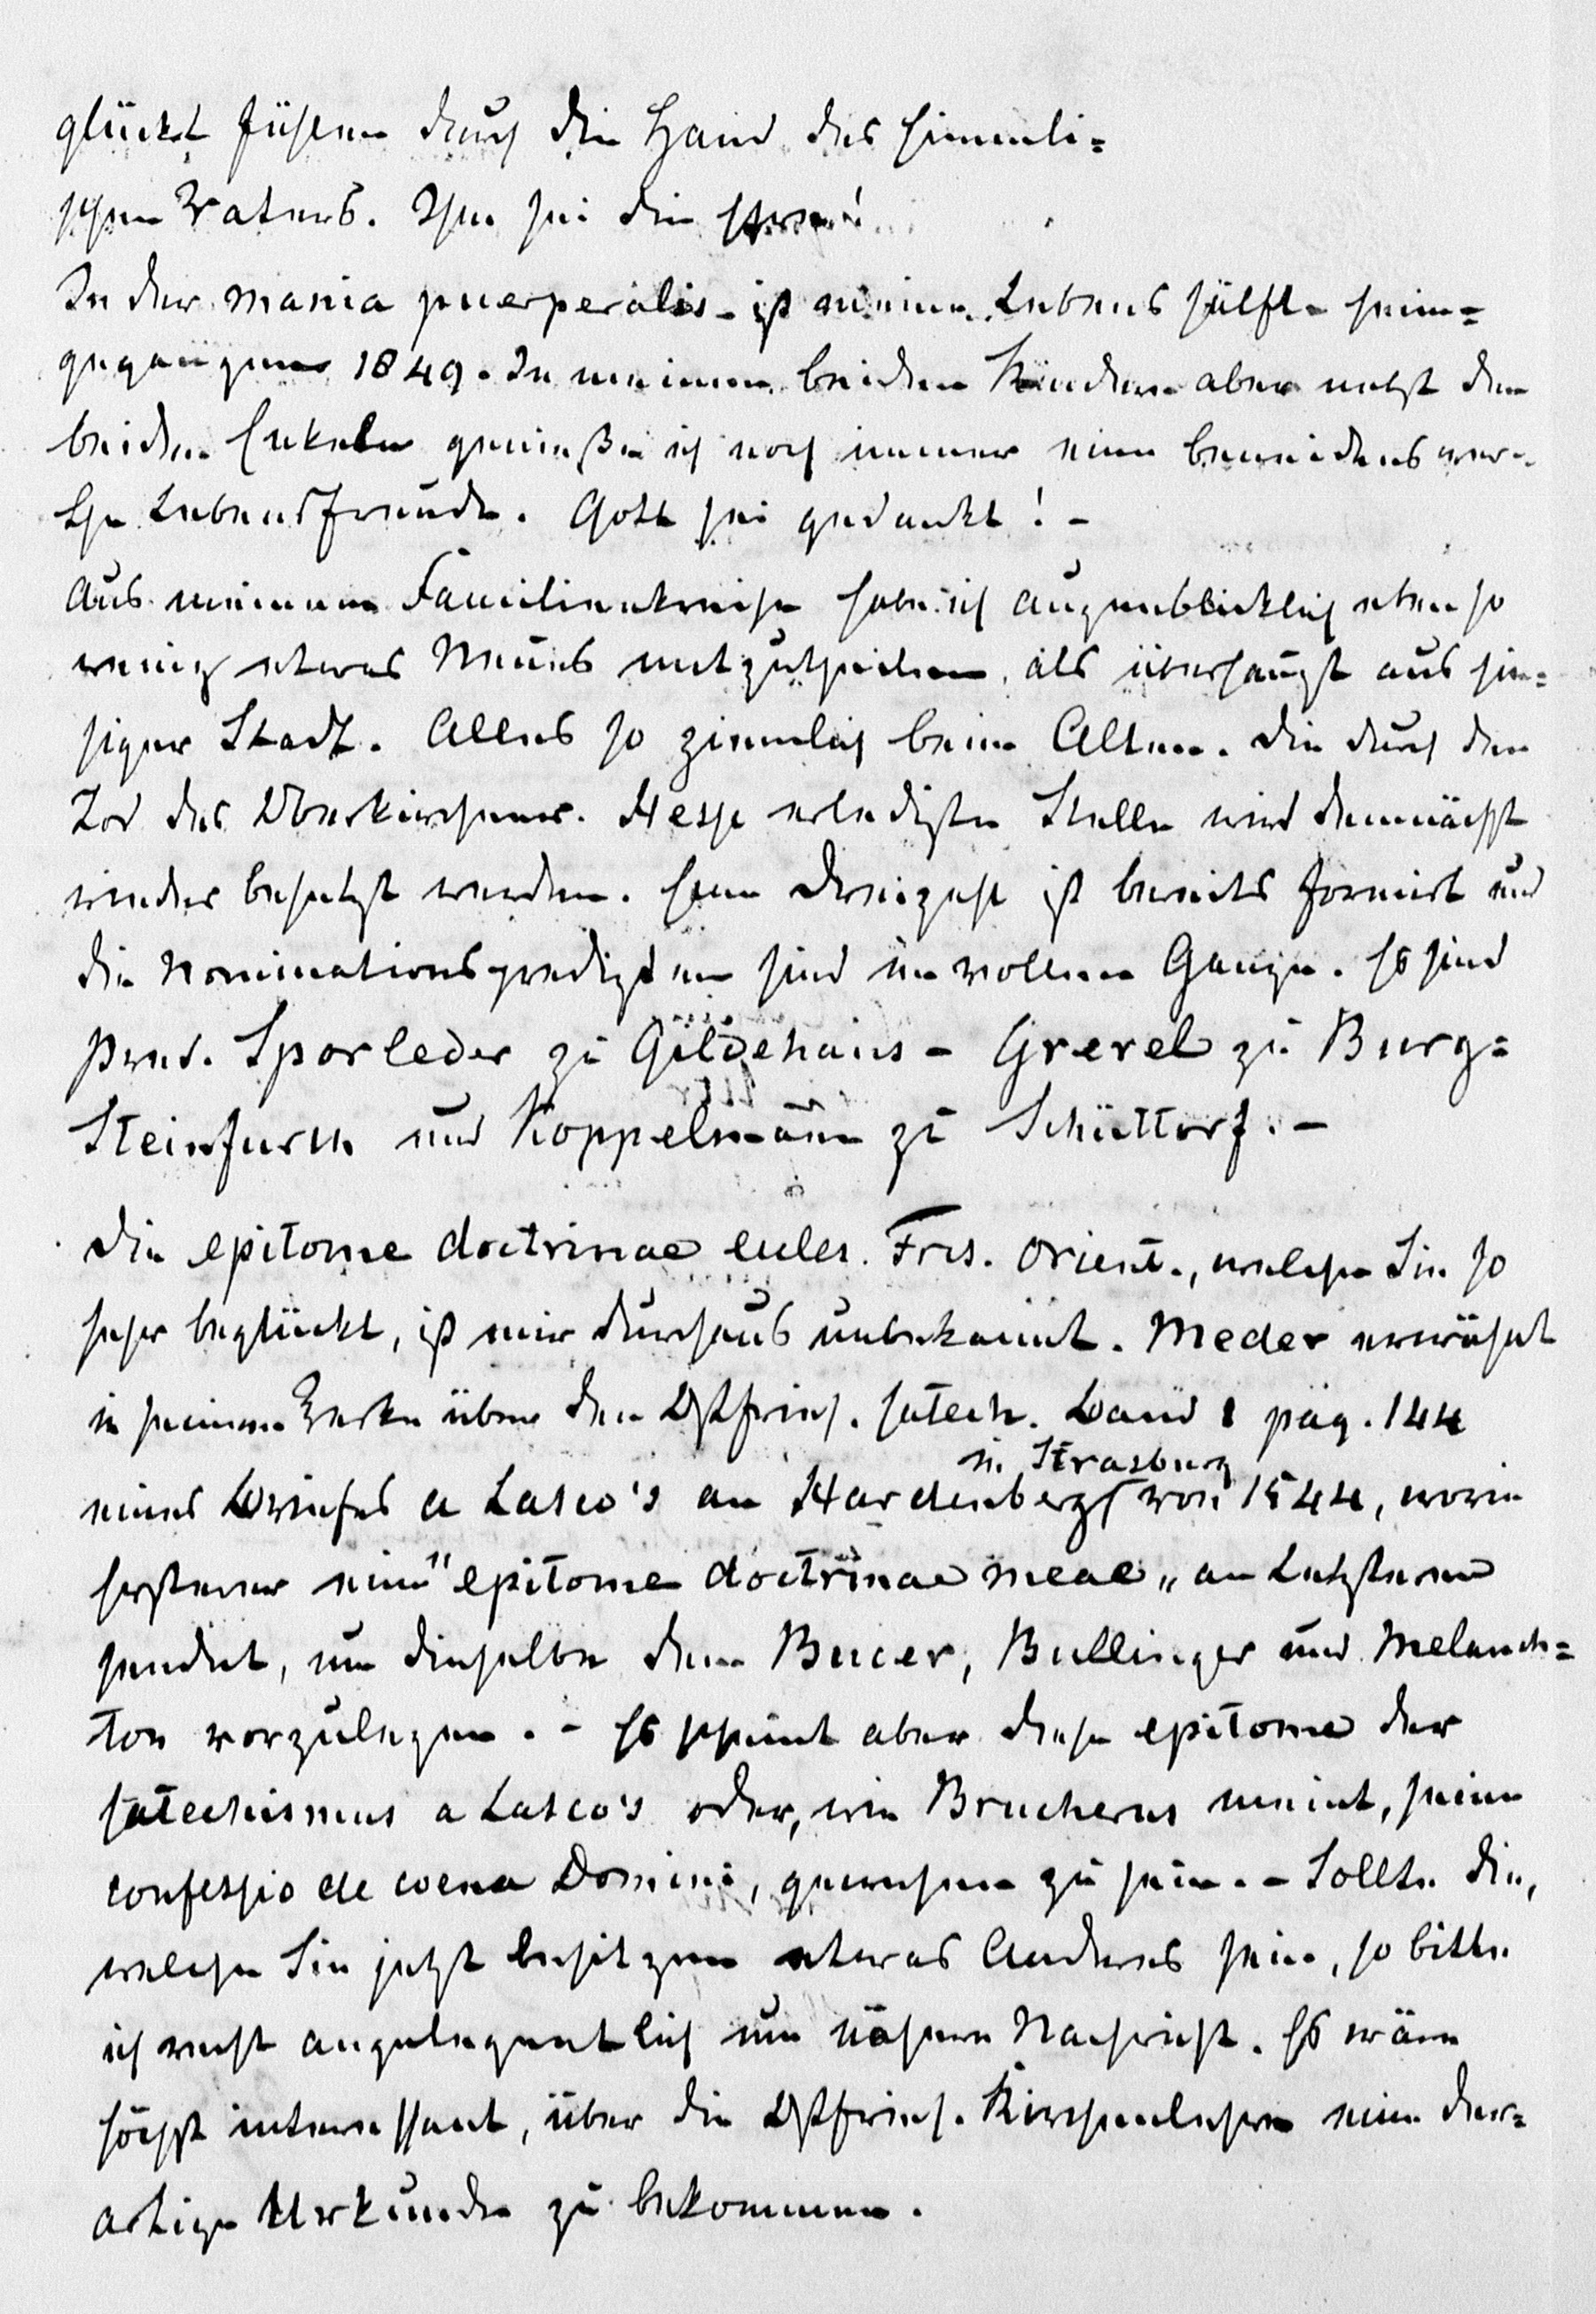 glückt fühlen durch die Hand des himmli=
schen Vaters. Ihm sei die Ehre!
In der mania puerperalis ist meine Lebenshälfte heim=
gegangen 1849. In meinen beiden Kindern aber nebst den
beiden Enkeln genieße ich noch immer eine beneidenswer-
the Lebensfreude. Gott sei gedankt! -
Aus meinem Familienkreise habe ich augenblicklich eben so
wenig etwas Neues mitzutheilen, als überhaupt aus hie=
siger Stadt. Alles so ziemlich beim Alten. Die durch den
Tod des Oberkirchenr. Hesse erledigte Stelle wird demnächst
wieder besetzt werden. Eine Dreizahl ist bereits formirt und
die Nominationspredigten sind im vollen Gange. Es sind
Pred. Sporleder zu Gildehaus - Grevel zu Burg=
Steinfurth und Koppelmann zu Schüttorf. -
Die epitome doctrinae eccles. Fris. Orient., welche Sie so
sehr beglückt, ist mir durchaus unbekannt. Meder erwähnt
in seinem Werke über den Ostfries. Catech. Band 1 pag. 144
eines Briefes a Lasco's an Hardenberg in Strasburg von 1544, worin
Ersterer eine "epitome doctrinae meae" an Letzteren
sendet, um dieselbe dem Bucer, Bullinger und Melanch=
ton vorzulegen. - Es scheint aber diese epitome der
Catechismus a Lasco's oder, wie Brucherus meint, seine
confessio de coena Domini, gewesen zu sein. - Sollte die,
welche Sie jetzt besitzen etwas Anderes sein, so bitte
ich recht angelegentlich um nähere Nachricht. Es wäre
höchst interessant, über die Ostfries. Kirchenlehre eine der=
artige Urkunde zu bekommen.